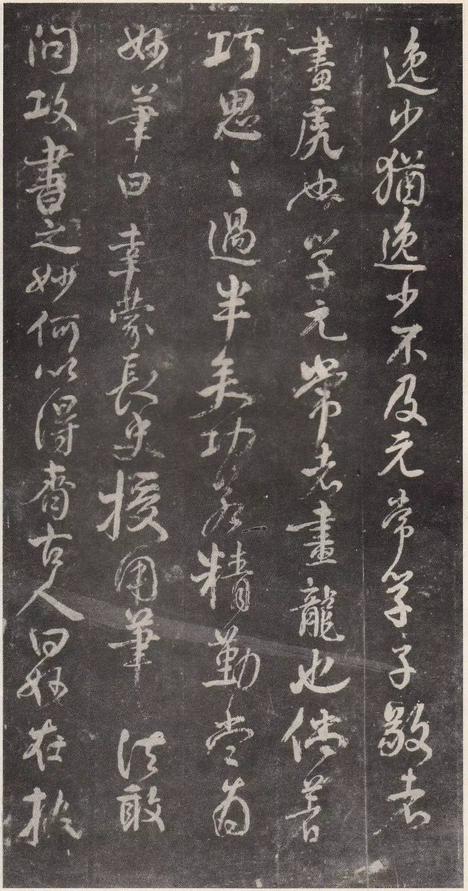 逸少猶逸少不及元常学子敬者
畫虎也学元常者畫龍也倘著
巧思思過半矣功若精勤當為
妙筆曰幸蒙長史授用筆法敢
問攻書之妙何以得齊古人曰妙在執